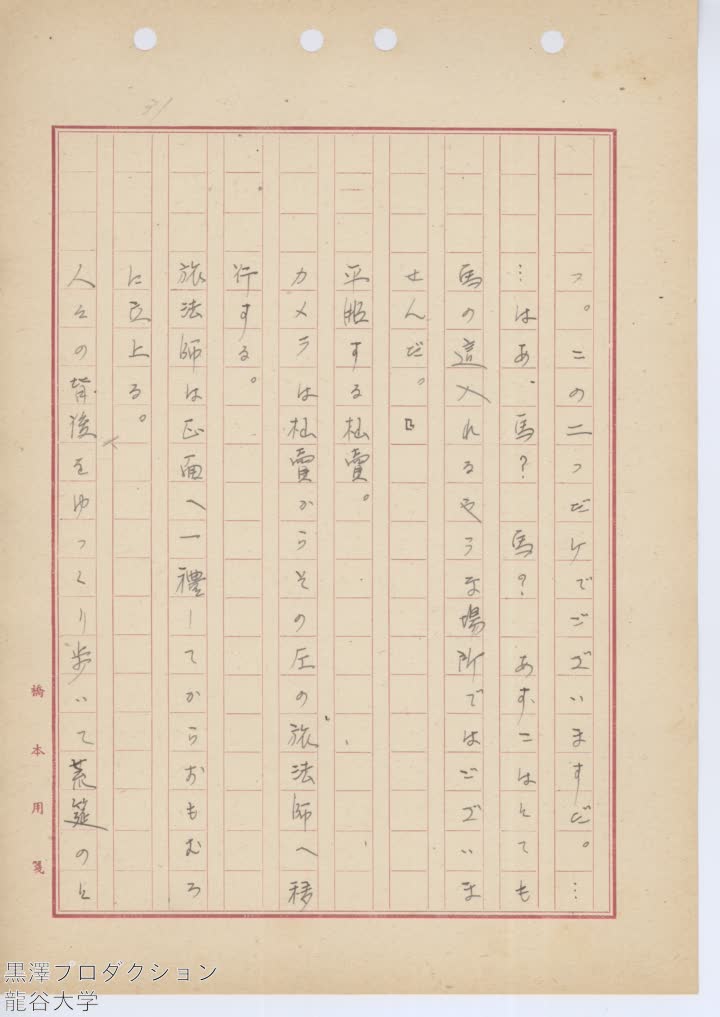 つ。この二つだけでございますだ。…
…はあ、馬？　馬？　あすこはとても
馬の這入れるやうな場所ではございま
せんだ。」
平服する杣賣。
カメラは杣賣からその左の旅法師へ移
行する。
旅法師は正面へ一禮してからおもむろ
に立上る。
人々の背後をゆっくり歩いて荒筵のと
橋本用箋
黒澤プロダクション
龍谷大学